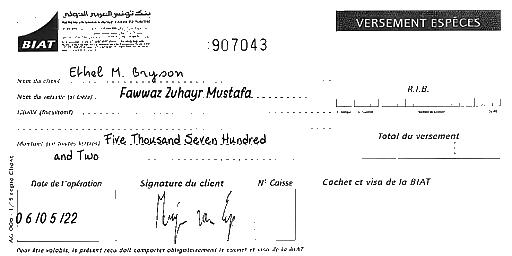 بنك تونس العربي الدولي
BIAT
:907043
VERSEMENT ESPÈCES
Nom du client Ethel M. Bryson
Nom du remettant (si tiers) Fawwaz Zuhayr Mustafa
R.I.B.
(facultatif)
Montant (en toutes lettres) Five Thousand Seven Hundred
and Two
Total du versement
Date de l'opération
Signature du client
N° Caisse
Cachet et visa de la BIAT
06/05/22
Pour être valable, le présent reçu doit comporter obligatoirement le cachet et visa de la BIAT